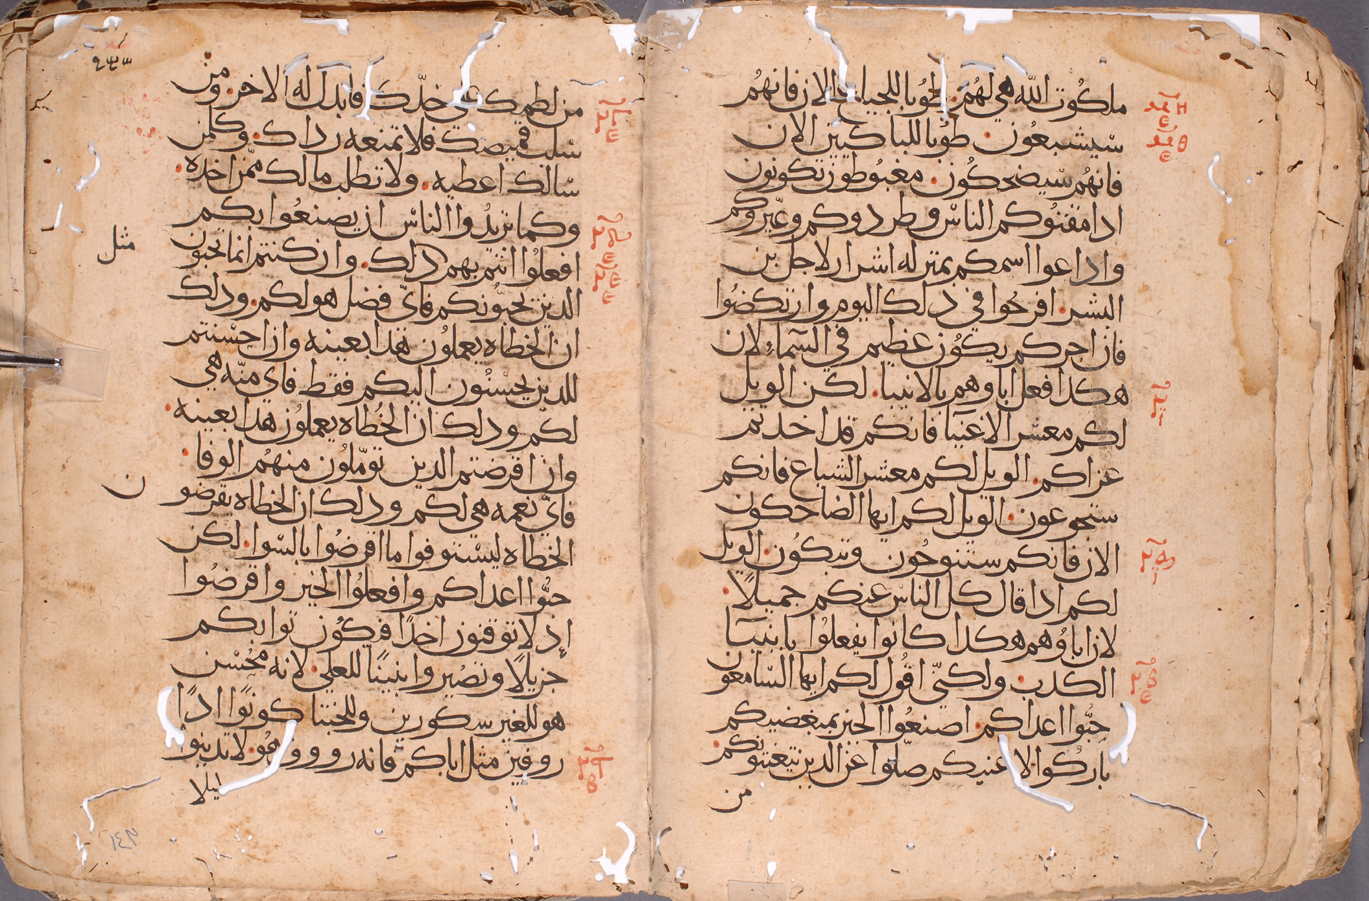 ملكوت الله هي لهم. طوبا للجياع الان فانهم
سيشبعون. طوبا للباكيين الان
فانهم سيضحكون. مغبوطون تكونون
ادا مقتوكم الناس وطردوكم وعيروكم
واداعوا اسمكم بمتزله اشرار لاجل بن
البشر. افرحوا في دلك اليوم وارتكضوا
فان اجركم يكون عظيم في السماء لان
هكدا فعل اباوهم بالانبيا. لكن الويل
لكم معشر الاغنيا فانكم قد اخدتم
عزاكم. الويل لكم معشر الشباع فانكم
ستجوعون. الويل لكم ايها الضاحكون
الان فانكم ستنوحون وتبكون. الويل
لكم ادا قال كل الناس عنكم جميلا.
لان اباوهم هكدا كانوا يفعلوا بانبيا
الكدب. ولكني اقول لكم ايها السامعون
حبوا اعداكم. اصنعوا الخير بمبغضيكم
باركوا لاعنيكم صلوا عن الدين يعنتونكم.
من
من لطمك على خدك فابدل له الاخر. ومن
سلب قميصك فلا تمنعه رداك. وكلمن
سالك اعطيه. ولا تطلب مالك ممن اخده.
وكما تريدوا الناس ان يصنعوا بكم
افعلوا انتم بهم كدلك. وان كنتم انما تحبون
مثل
الدين يحبونكم فاي فضل هو لكم. ودلك
ان الخطاه يعملون هدا بعينه وان احسنتم
للدين يحسنون اليكم فقط فاي منه هي
لكم ودلك ان الخطاه يعملون هدا بعينه.
وان اقرضتم الدين توملون منهم الوفا.
فاي نعمه هي لكم ودلك ان الخطاه يقرضو
ن
الخطاه ليستوفوا ما اقرضوا بالسوا. لكن
حبوا اعداكم وافعلوا الخير واقرضوا
اد لا توقنون اخدا فيكون توابكم
جزيلا وتصيروا انبيا للعلي. لانه محسن
هو للغير سكورين وللخبتا كونوا ادا
روفين مثل اباكم فانه رووف هو. لا تدينو
ليلا